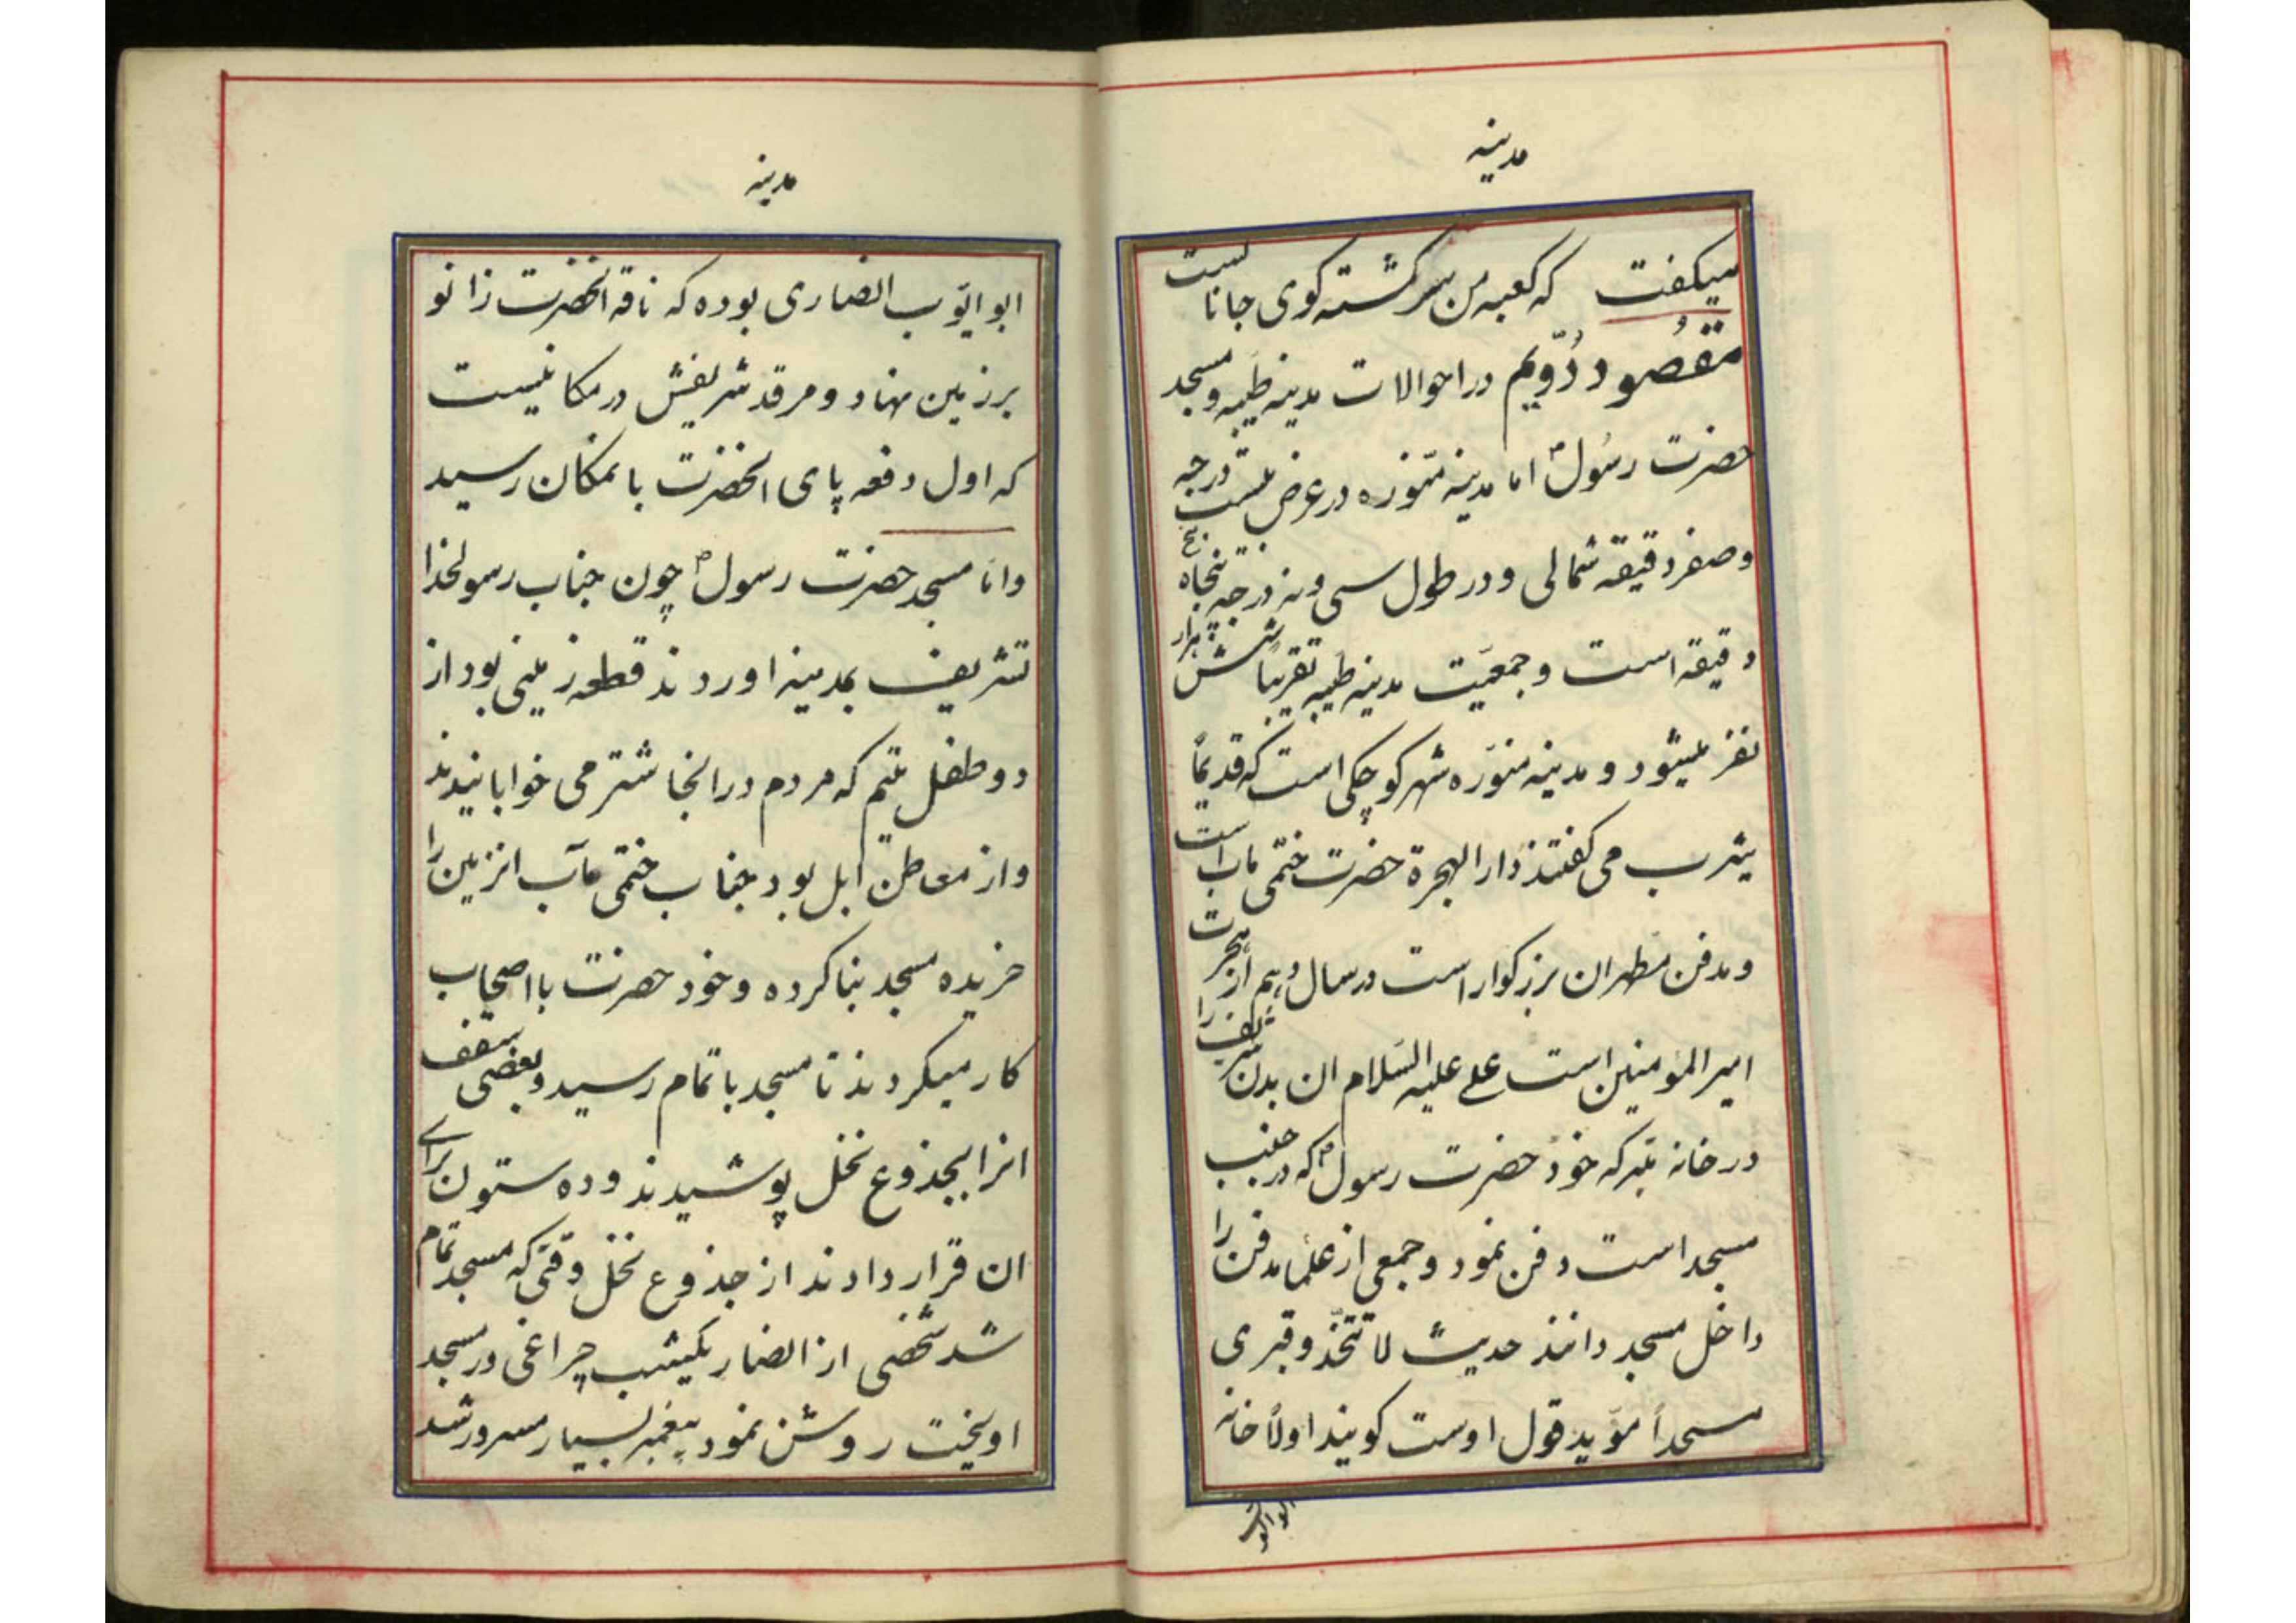 مدینه
میکفت که کعبه من سرکشته کوی جانانست
مقصود دُوّیم در احوالات مدینه طیبه و مسجد
حضرت رسُول ص اما مدینه منوره در عرض بیست درجه
و صفر دقیقه شمالی و در طول سی و نه درجه پنجاه پنج
دقیقه است و جمعیّت مدینه طیبه تقریباً شش هزار
نفر میشود و مدینه منوّره شهر کوچکی است که قدیماً
یثرب می کفتند دار الهجرة حضرت ختمی ماب است
و مدفن مطهر ان بزرکوار است در سال دهم از هجرت
امیر المؤمنین است علی علیه السّلام ان بدن شریف را
در خانه متبرکه خود حضرت رسول ص که در جنب
مسجد است دفن نمود و جمعی از علما مدفن را
داخل مسجد دانند حدیث لا تتخذو قبری
مسجداً مؤید قول اوست کویند اولاً خانه
ابو ایوب
مدینه
ابو ایّوب انصاری بوده که ناقه انحضرت زانو
بر زمین نهاد و مرقد شریفش در مکانیست
که اول دفعه پای انحضرت بانمکان رسید
و اما مسجد حضرت رسول ص چون جناب رسولخدا
تشریف بمدینه اوردند قطعه زمینی بود از
دو طفل یتیم که مردم در انجا شتر می خوابانیدند
و از معاطن ابل بود جناب ختمی مآب انزمین را
خریده مسجد بنا کرده و خود حضرت با اصحاب
کار میکردند تا مسجد باتمام رسید و بعضی سقف
انرا بجذوع نخل پوشیدند و ده ستون برای
ان قرار دادند از جذوع نخل وقتی که مسجد تمام
شد شخصی از انصار یکشب چراغی در مسجد
اویخت روشن نمود پیغمبر بسیار مسرور شد